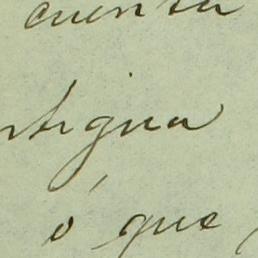 cuenta
ntigua
ó que